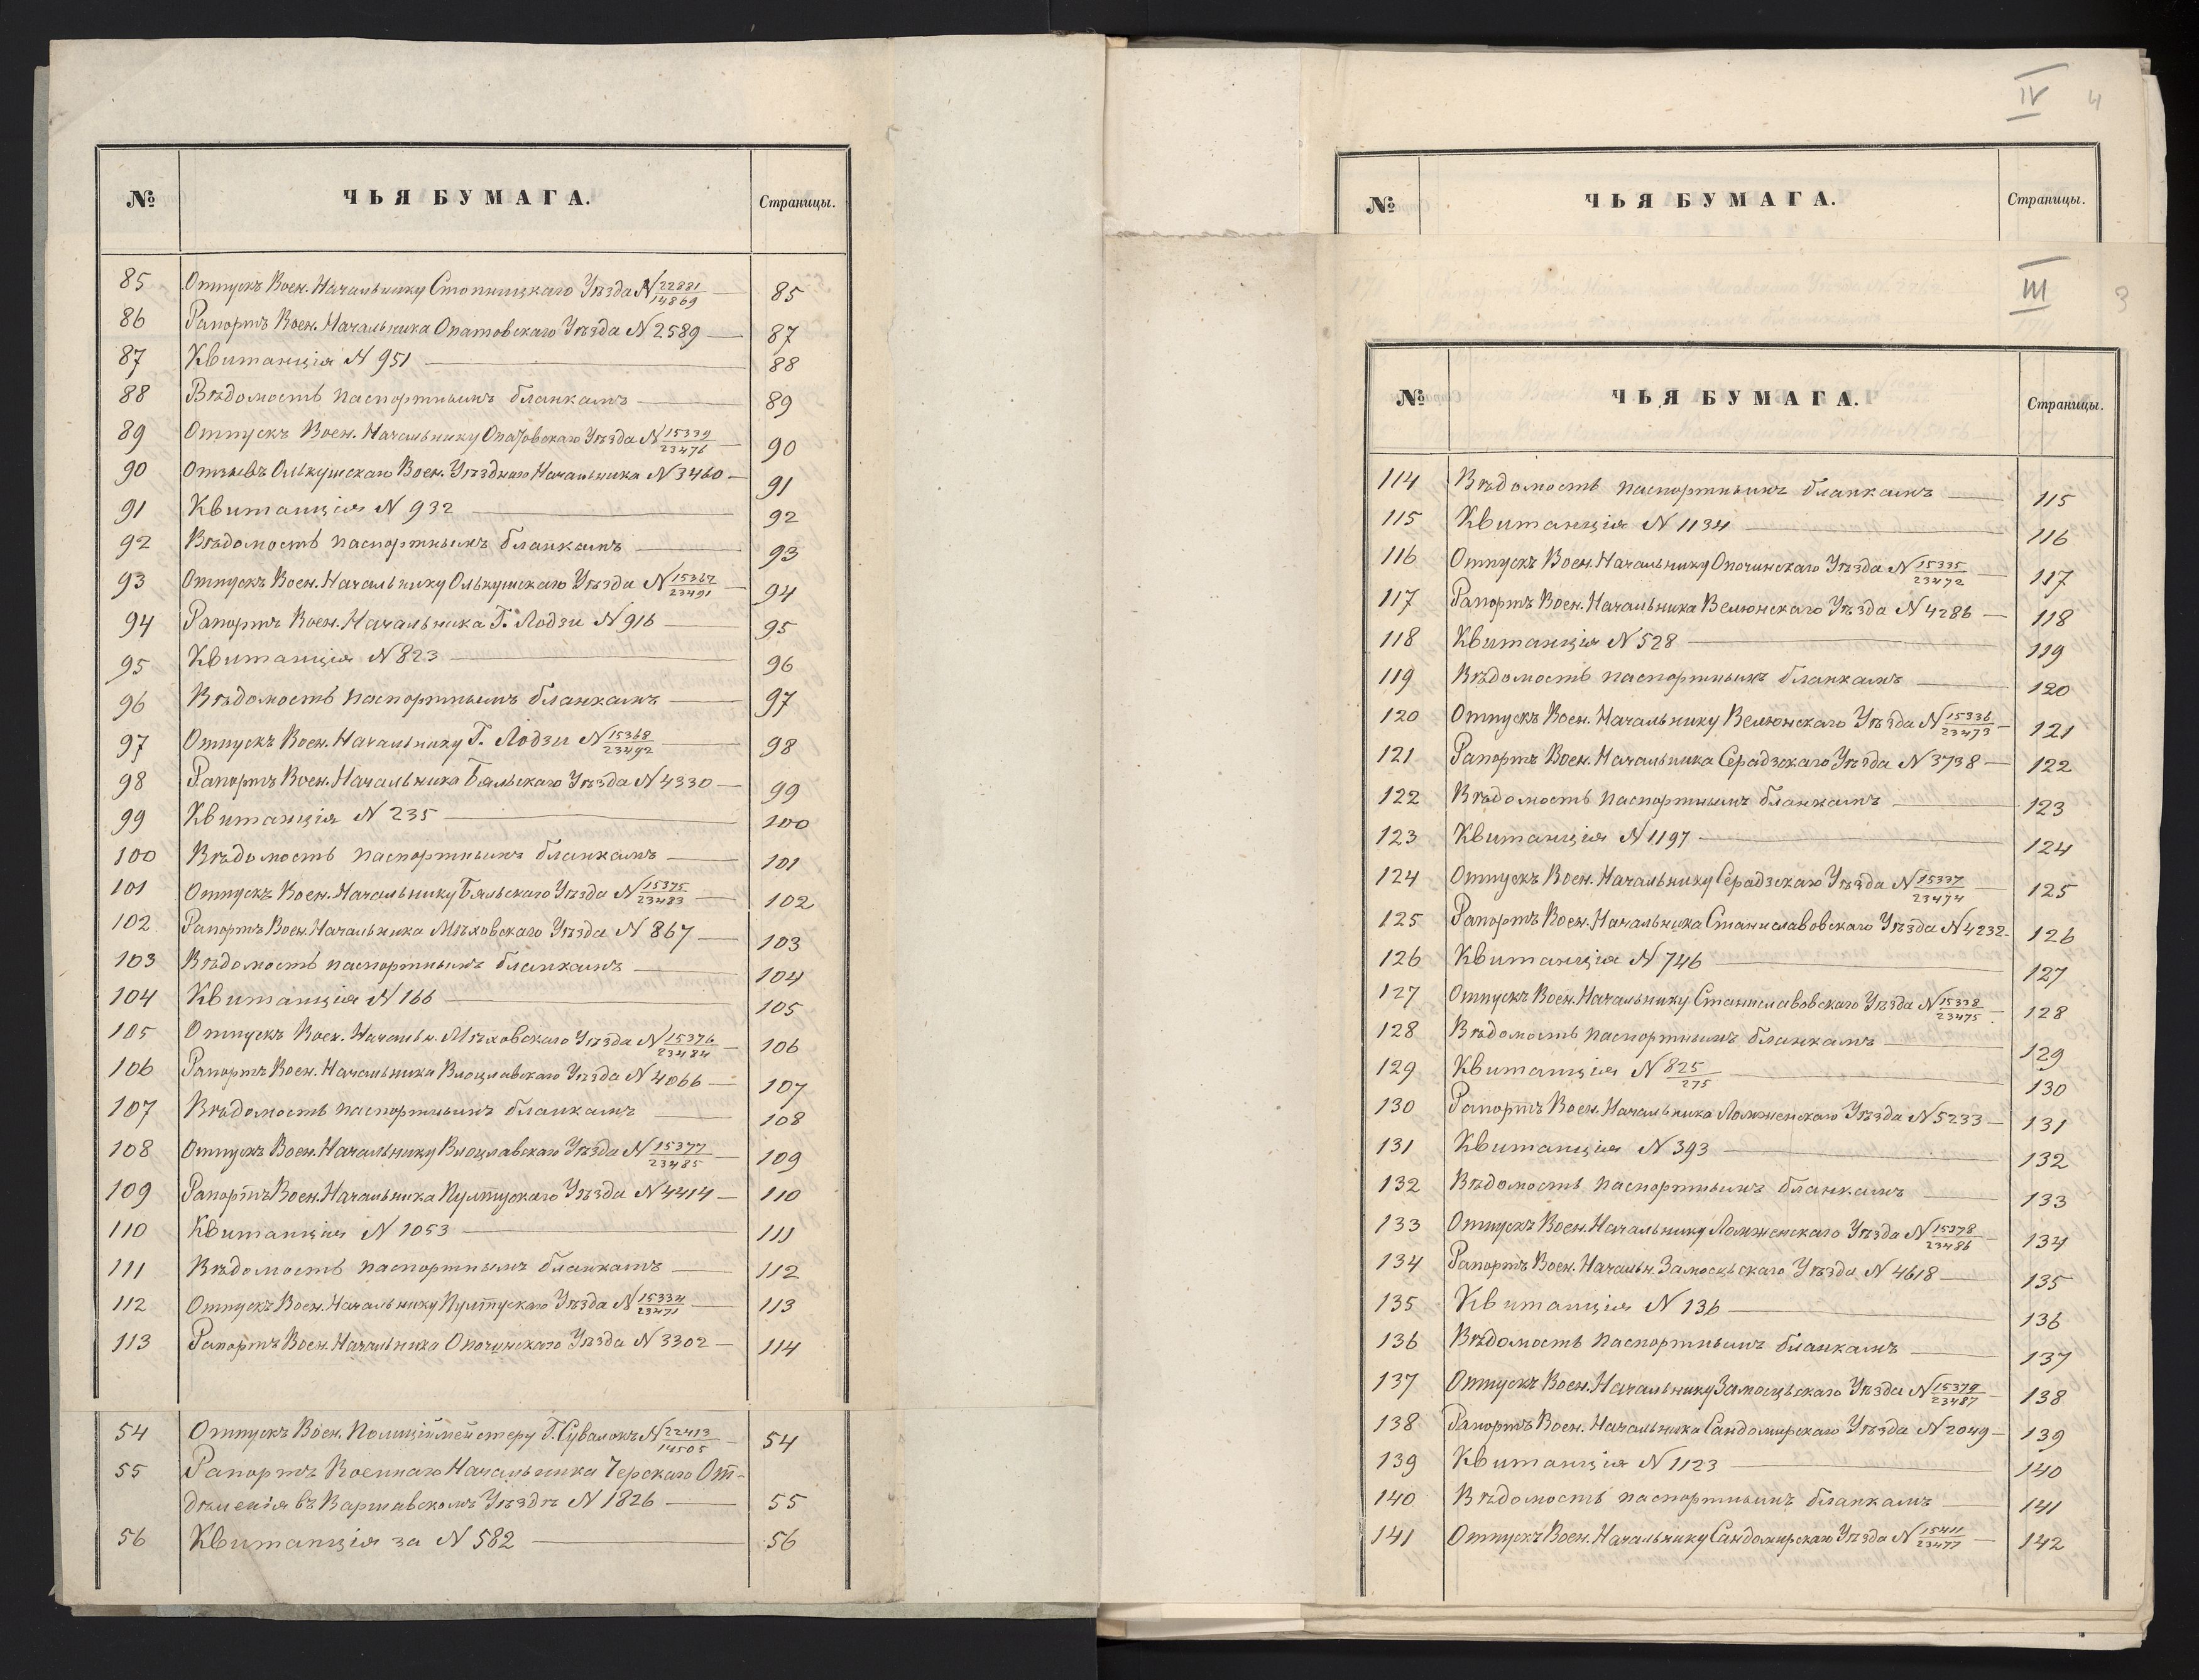 № ЧЬЯ БУМАГА. Страницы.
85 Отпускъ Воен. Начальнику Стопницкаго Уѣзда N 22881/14869 — 85
86 Рапортъ Воен. Начальника Опатовскаго Уѣзда N 2589 — 87
87 Квитанція N 951 — 88
88 Вѣдомость паспортнымъ бланкамъ — 89
89 Отпускъ Воен. Начальнику Опатовскаго Уѣзда N 15339/23476 — 90
90 Отзывъ Олькушскаго Воен. Уѣзднаго Начальника N 3460 — 91
91 Квитанція N 932 — 92
92 Вѣдомость паспортнымъ бланкамъ — 93
93 Отпускъ Воен. Начальнику Олькушскаго Уѣзда N 15367/23491 — 94
94 Рапортъ Воен. Начальника Г. Лодзи N 916 — 95
95 Квитанція N 823 — 96
96 Вѣдомость паспортнымъ бланкамъ — 97
97 Отпускъ Воен. Начальнику Г. Лодзи N 15368/23492 — 98
98 Рапортъ Воен. Начальника Бяльскаго Уѣзда N 4330 — 99
99 Квитанція N 235 — 100
100 Вѣдомость паспортнымъ бланкамъ — 101
101 Отпускъ Воен. Начальнику Бяльскаго Уѣзда N 15375/23483 — 102
102 Рапортъ Воен. Начальника Мѣховскаго Уѣзда N 867 — 103
103 Вѣдомость паспортнымъ бланкамъ — 104
104 Квитанція N 166 — 105
105 Отпускъ Воен. Начальн. Мѣховскаго Уѣзда N 15376/23484 — 106
106 Рапортъ Воен. Начальника Влоцлавскаго Уѣзда N 4066 — 107
107 Вѣдомость паспортнымъ бланкамъ — 108
108 Отпускъ Воен. Начальнику Влоцлавскаго Уѣзда N 15377/23485 — 109
109 Рапортъ Воен. Начальника Пултускаго Уѣзда N 4414 — 110
110 Квитанція N 1053 — 111
111 Вѣдомость паспортнымъ бланкамъ — 112
112 Отпускъ Воен. Начальнику Пултускаго Уѣзда N 15334/23471 — 113
113 Рапортъ Воен. Начальника Опочинскаго Уѣзда N 3302 — 114
54 Отпускъ Воен. Полиціймейстеру Г. Сувалокъ N 22413/14505 — 54
55 Рапортъ Военнаго Начальника Черскаго От-
дѣленія въ Варшавскомъ Уѣздѣ N 1826 — 55
56 Квитанція за N 582 — 56
IV 4
№ ЧЬЯ БУМАГА. Страницы.
III 3
№ ЧЬЯ БУМАГА. Страницы.
114 Вѣдомость паспортнымъ бланкамъ — 115
115 Квитанція N 1134 — 116
116 Отпускъ Воен. Начальнику Опочинскаго Уѣзда N 15335/23472 — 117
117 Рапортъ Воен. Начальника Велюнскаго Уѣзда N 4286 — 118
118 Квитанція N 528 — 119
119 Вѣдомость паспортнымъ бланкамъ — 120
120 Отпускъ Воен. Начальнику Велюнскаго Уѣзда N 15336/23473 — 121
121 Рапортъ Воен. Начальника Серадзскаго Уѣзда N 3738 — 122
122 Вѣдомость паспортнымъ бланкамъ — 123
123 Квитанція N 1197 — 124
124 Отпускъ Воен. Начальнику Серадзскаго Уѣзда N 15337/23474 — 125
125 Рапортъ Воен. Начальника Станиславовскаго Уѣзда N 4232 — 126
126 Квитанція N 746 — 127
127 Отпускъ Воен. Начальнику Станиславовскаго Уѣзда N 15338/23475 — 128
128 Вѣдомость паспортнымъ бланкамъ — 129
129 Квитанція N 825/275 — 130
130 Рапортъ Воен. Начальника Ломженскаго Уѣзда N 5233 — 131
131 Квитанція N 393 — 132
132 Вѣдомость паспортнымъ бланкамъ — 133
133 Отпускъ Воен. Начальнику Ломженскаго Уѣзда N 15378/23486 — 134
134 Рапортъ Воен. Начальн. Замосцьскаго Уѣзда N 4618 — 135
135 Квитанція N 136 — 136
136 Вѣдомость паспортнымъ бланкамъ — 137
137 Отпускъ Воен. Начальнику Замосцьскаго Уѣзда N 15379/23487 — 138
138 Рапортъ Воен. Начальника Сандомирскаго Уѣзда N 2049 — 139
139 Квитанція N 1123 — 140
140 Вѣдомость паспортнымъ бланкамъ — 141
141 Отпускъ Воен. Начальнику Сандомирскаго Уѣзда N 15411/23477 — 142